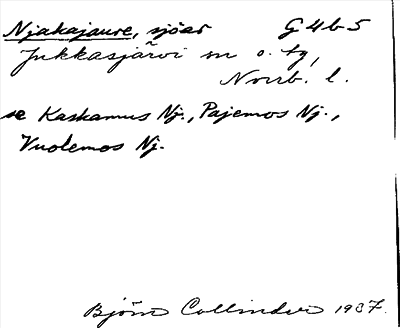 Njakajaure, sjöar G 4 b 5
Jukkasjärvi sn o. tg,
Norrb. l.
se Kaskamus Nj., Pajemos Nj.,
Vuolemos Nj.
Björn Collinder 1937.